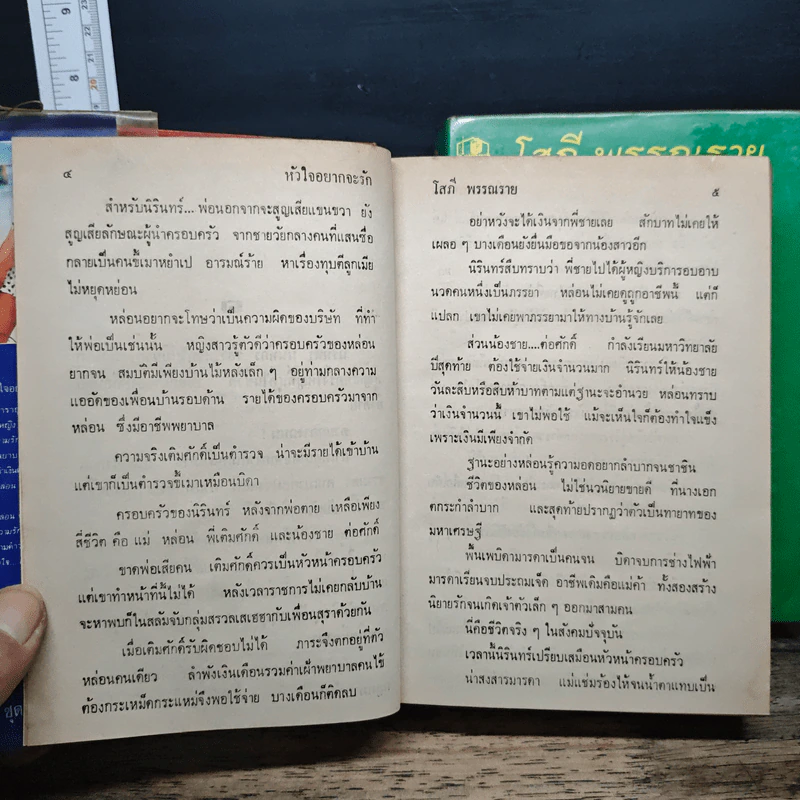 ๔ หัวใจอยากจะรัก
สำหรับนิรินทร์... พ่อนอกจากจะสูญเสียแขนขวา ยัง
สูญเสียลักษณะผู้นำครอบครัว จากชายวัยกลางคนที่แสนซื่อ
กลายเป็นคนขี้เมาหยำเป อารมณ์ร้าย หาเรื่องทุบตีลูกเมีย
ไม่หยุดหย่อน
หล่อนอยากจะโทษว่าเป็นความผิดของบริษัท ที่ทำ
ให้พ่อเป็นเช่นนั้น หญิงสาวรู้ตัวดีว่าครอบครัวของหล่อน
ยากจน สมบัติมีเพียงบ้านไม้หลังเล็ก ๆ อยู่ท่ามกลางความ
แออัดของเพื่อนบ้านรอบด้าน รายได้ของครอบครัวมาจาก
หล่อน ซึ่งมีอาชีพพยาบาล
ความจริงเติมศักดิ์เป็นตำรวจ น่าจะมีรายได้เข้าบ้าน
แต่เขาก็เป็นตำรวจขี้เมาเหมือนบิดา
ครอบครัวของนิรินทร์ หลังจากพ่อตาย เหลือเพียง
สี่ชีวิต คือ แม่ หล่อน พี่เติมศักดิ์ และน้องชาย ต่อศักดิ์
ขาดพ่อเสียคน เติมศักดิ์ควรเป็นหัวหน้าครอบครัว
แต่เขาทำหน้าที่นี้ไม่ได้ หลังเวลาราชการไม่เคยกลับบ้าน
จะหาพบก็ในสลัมจับกลุ่มสรวลเสเฮฮากับเพื่อนสุราด้วยกัน
เมื่อเติมศักดิ์รับผิดชอบไม่ได้ ภาระจึงตกอยู่ที่ตัว
หล่อนคนเดียว ลำพังเงินเดือนรวมค่าเฝ้าพยาบาลคนไข้
ต้องกระเหม็ดกระแหม่จึงพอใช้จ่าย บางเดือนก็ติดลบ
โสภี พรรณราย ๕
อย่าหวังจะได้เงินจากพี่ชายเลย สักบาทไม่เคยให้
เผลอ ๆ บางเดือนยังยื่นมือขอจากน้องสาวอีก
นิรินทร์สืบทราบว่า พี่ชายไปได้ผู้หญิงบริการอบอาบ
นวดคนหนึ่งเป็นภรรยา หล่อนไม่เคยดูถูกอาชีพนี้ แต่ก็
แปลก เขาไม่เคยพาภรรยามาให้ทางบ้านรู้จักเลย
ส่วนน้องชาย....ต่อศักดิ์ กำลังเรียนมหาวิทยาลัย
ปีสุดท้าย ต้องใช้จ่ายเงินจำนวนมาก นิรินทร์ให้น้องชาย
วันละสิบหรือสิบห้าบาทตามแต่ฐานะจะอำนวย หล่อนทราบ
ว่าเงินจำนวนนี้ เขาไม่พอใช้ แม้จะเห็นใจก็ต้องทำใจแข็ง
เพราะเงินมีเพียงจำกัด
ฐานะอย่างหล่อนรู้ความอดอยากลำบากจนชาชิน
ชีวิตของหล่อน ไม่ใช่นวนิยายขายดี ที่นางเอก
ตกระกำลำบาก และสุดท้ายปรากฏว่าตัวเป็นทายาทของ
มหาเศรษฐี
พื้นเพบิดามารดาเป็นคนจน บิดาจบการช่างไฟฟ้า
มารดาเรียนจบประถมเจ็ด อาชีพเดิมคือแม่ค้า ทั้งสองสร้าง
นิยายรักจนเกิดเจ้าตัวเล็ก ๆ ออกมาสามคน
นี่คือชีวิตจริง ๆ ในสังคมปัจจุบัน
เวลานี้นิรินทร์เปรียบเสมือนหัวหน้าครอบครัว
น่าสงสารมารดา แม่แช่มร้องไห้จนน้ำตาแทบเป็น
โสภี พรรณราย
9
8
23
22
21
20
ชุด